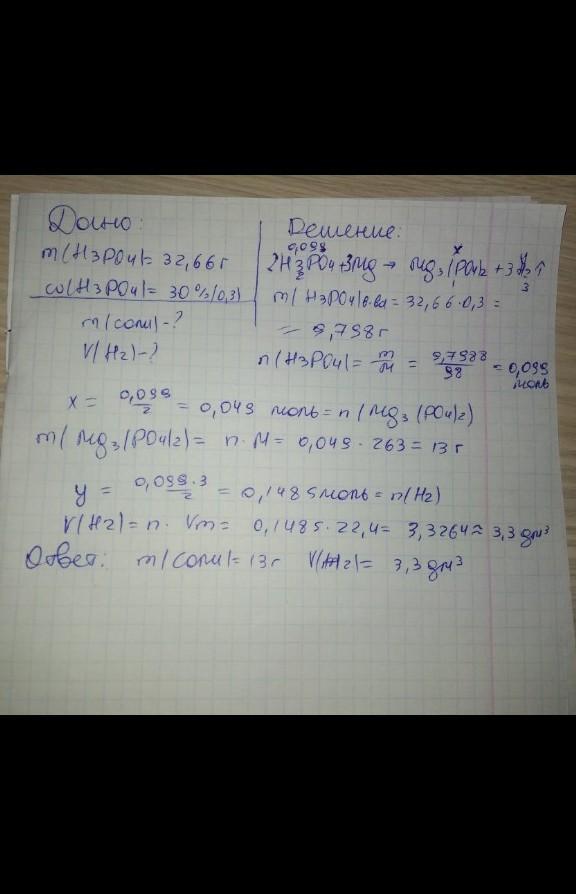 Дано:
m(H3PO4)= 32,66 г
ω(H3PO4)= 30%(0,3)
m(соли)-?
V(H2)-?
Решение:
0,099 x
2H3PO4+3Mg → Mg3(PO4)2 + 3H2↑
2 1 3
m(H3PO4)в-ва = 32,66·0,3 =
= 9,798 г
n(H3PO4)= m/M = 9,7988/98 = 0,099 моль
x = 0,099/2 = 0,049 моль = n(Mg3(PO4)2)
m(Mg3(PO4)2)= n·M = 0,049·263 = 13 г
y = 0,099·3/2 = 0,1485 моль = n(H2)
V(H2)= n·Vm = 0,1485·22,4 = 3,3264 ≈ 3,3 дм³
Ответ: m(соли)= 13 г V(H2)= 3,3 дм³